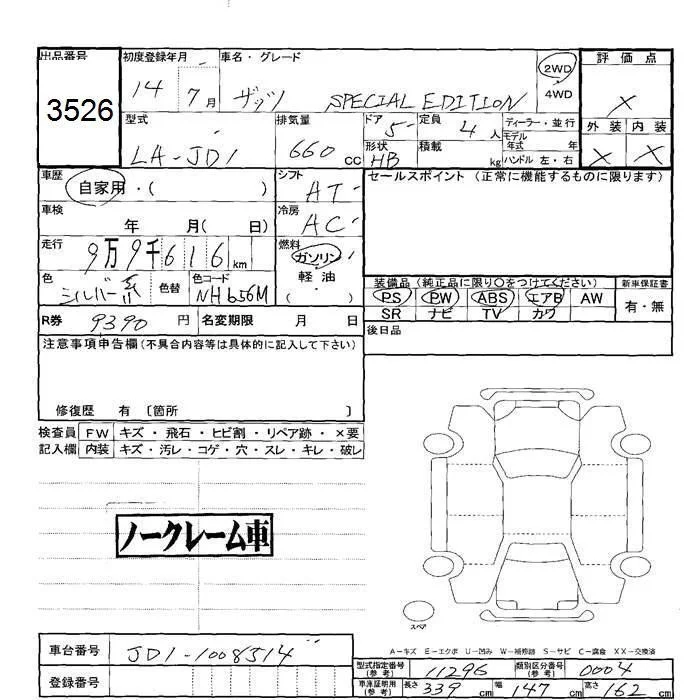 出品番号 初度登録年月 車名・グレード 評価点
3526 14 7月 ザッツ SPECIAL EDITION 2WD 4WD X
型式 排気量 ドア 定員 ディーラー・並行 外装 内装
LA-JD1 660cc 5 4人 モデル年式 年 X X
形状 HB 積載 kg ハンドル 左・右
車歴 自家用・( ) シフト AT セールスポイント (正常に機能するものに限ります)
車検 年 月( 日) 冷房 AC
走行 9万9千616km 燃料 ガソリン 軽油 ( )
色 シルバー系 色替 色コード NH656M
装備品 (純正品に限り○をつけてください) 新車保証書
PS PW ABS エアB AW 有・無
SR ナビ TV カワ
R券 9390円 名変期限 月 日 後日品
注意事項申告欄(不具合内容等は具体的に記入して下さい)
修復歴 有 〔箇所 〕
検査員 FW キズ・飛石・ヒビ割・リペア跡・×要
記入欄 内装 キズ・汚レ・コゲ・穴・スレ・キレ・破レ
ノークレーム車
スペア
A−キズ E−エクボ U−凹み W−補修跡 S−サビ C−腐食 XX−交換済
車台番号 JD1-1008514
型式指定番号(参考) 11296 類別区分番号(参考) 0004
登録番号
車庫証明用(参考) 長さ 339cm 幅 147cm 高さ 162cm